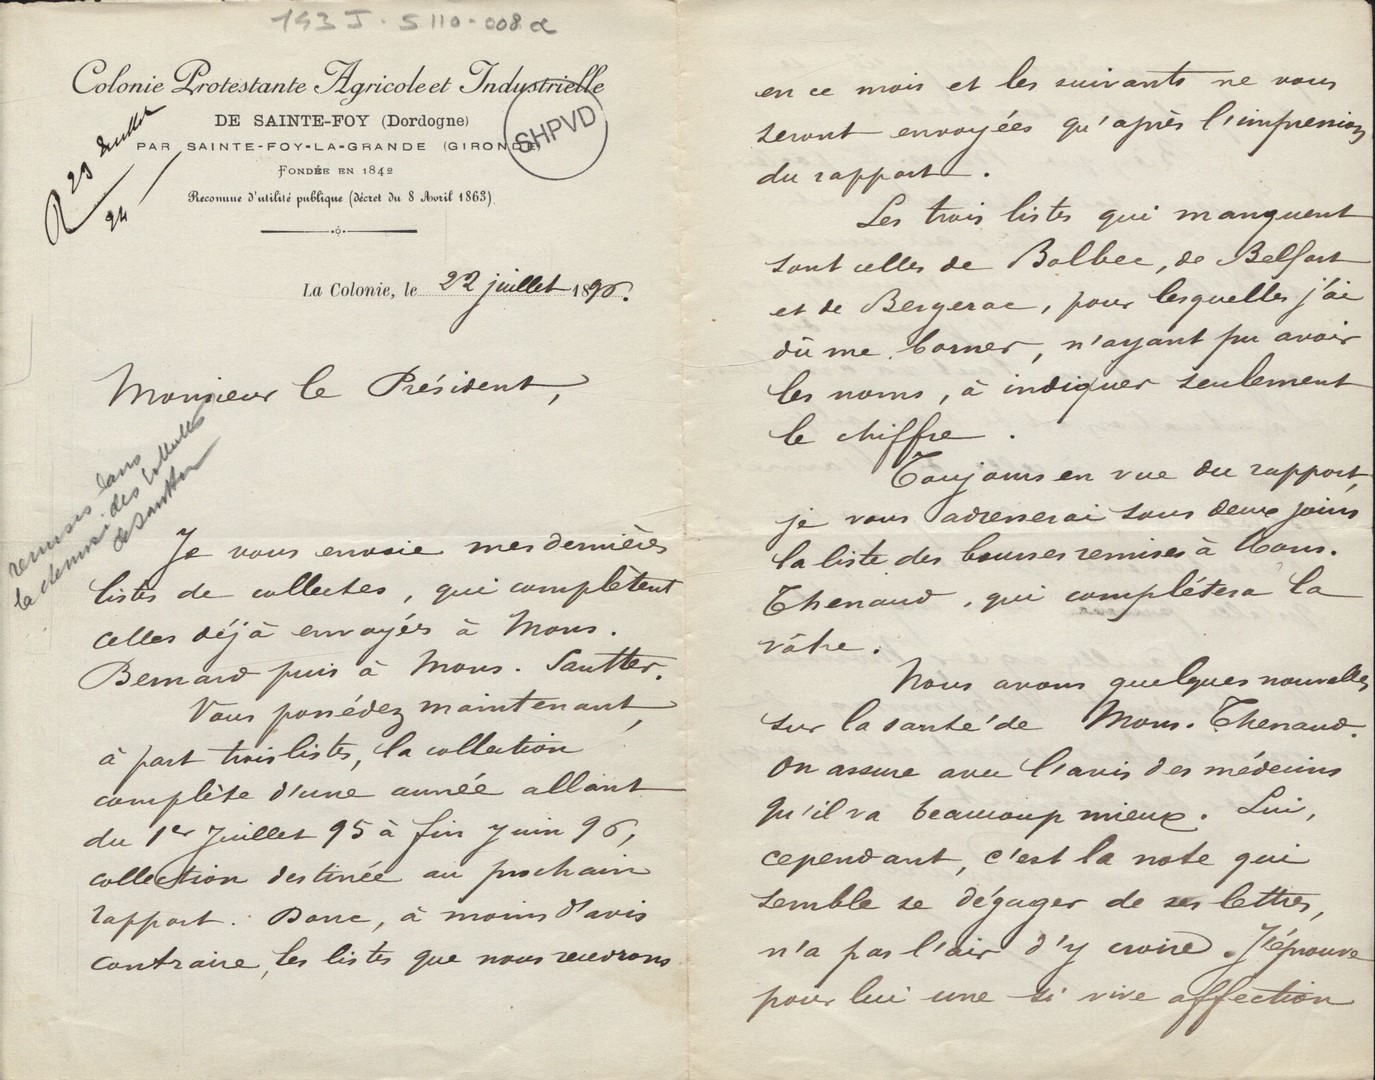 143 J. S 110-008a
Colonie Protestante Agricole et Industrielle
DE SAINTE-FOY (Dordogne)
PAR SAINTE-FOY-LA-GRANDE (GIRONDE)
FONDÉE EN 1842
Reconnue d'utilité publique (décret du 8 Avril 1863)
SHPVD
R 29 Juillet
La Colonie, le 22 juillet 1896.
Monsieur le Président,
remises dans
Je vous envoie mes dernières
listes de collectes, qui complètent
celles déjà envoyés à Mons.
Bernard puis à Mons. Sautter.
Vous possédez maintenant,
à part trois listes, la collection
complète d'une année allant
du 1er Juillet 95 à fin juin 96,
collection destinée au prochain
rapport. Donc, à moins d'avis
contraire, les listes que nous recevrons
en ce mois et les suivants ne vous
seront envoyées qu'après l'impression
du rapport.
Les trois listes qui manquent
sont celles de Bolbec, de Belfort
et de Bergerac, pour lesquelles j'ai
dû me borner, n'ayant pu avoir
les noms, à indiquer seulement
le chiffre.
Toujours en vue du rapport,
je vous adresserai sous deux jours
la liste des bourses remises à Mons.
Thenaud, qui complétera la
vôtre.
Nous avons quelques nouvelles
sur la santé de Mons. Thenaud.
On assure avec l'avis des médecins
qu'il va beaucoup mieux. Lui,
cependant, c'est la note qui
semble se dégager de ses lettres,
n'a pas l'air d'y croire. J'éprouve
pour lui une si vive affection